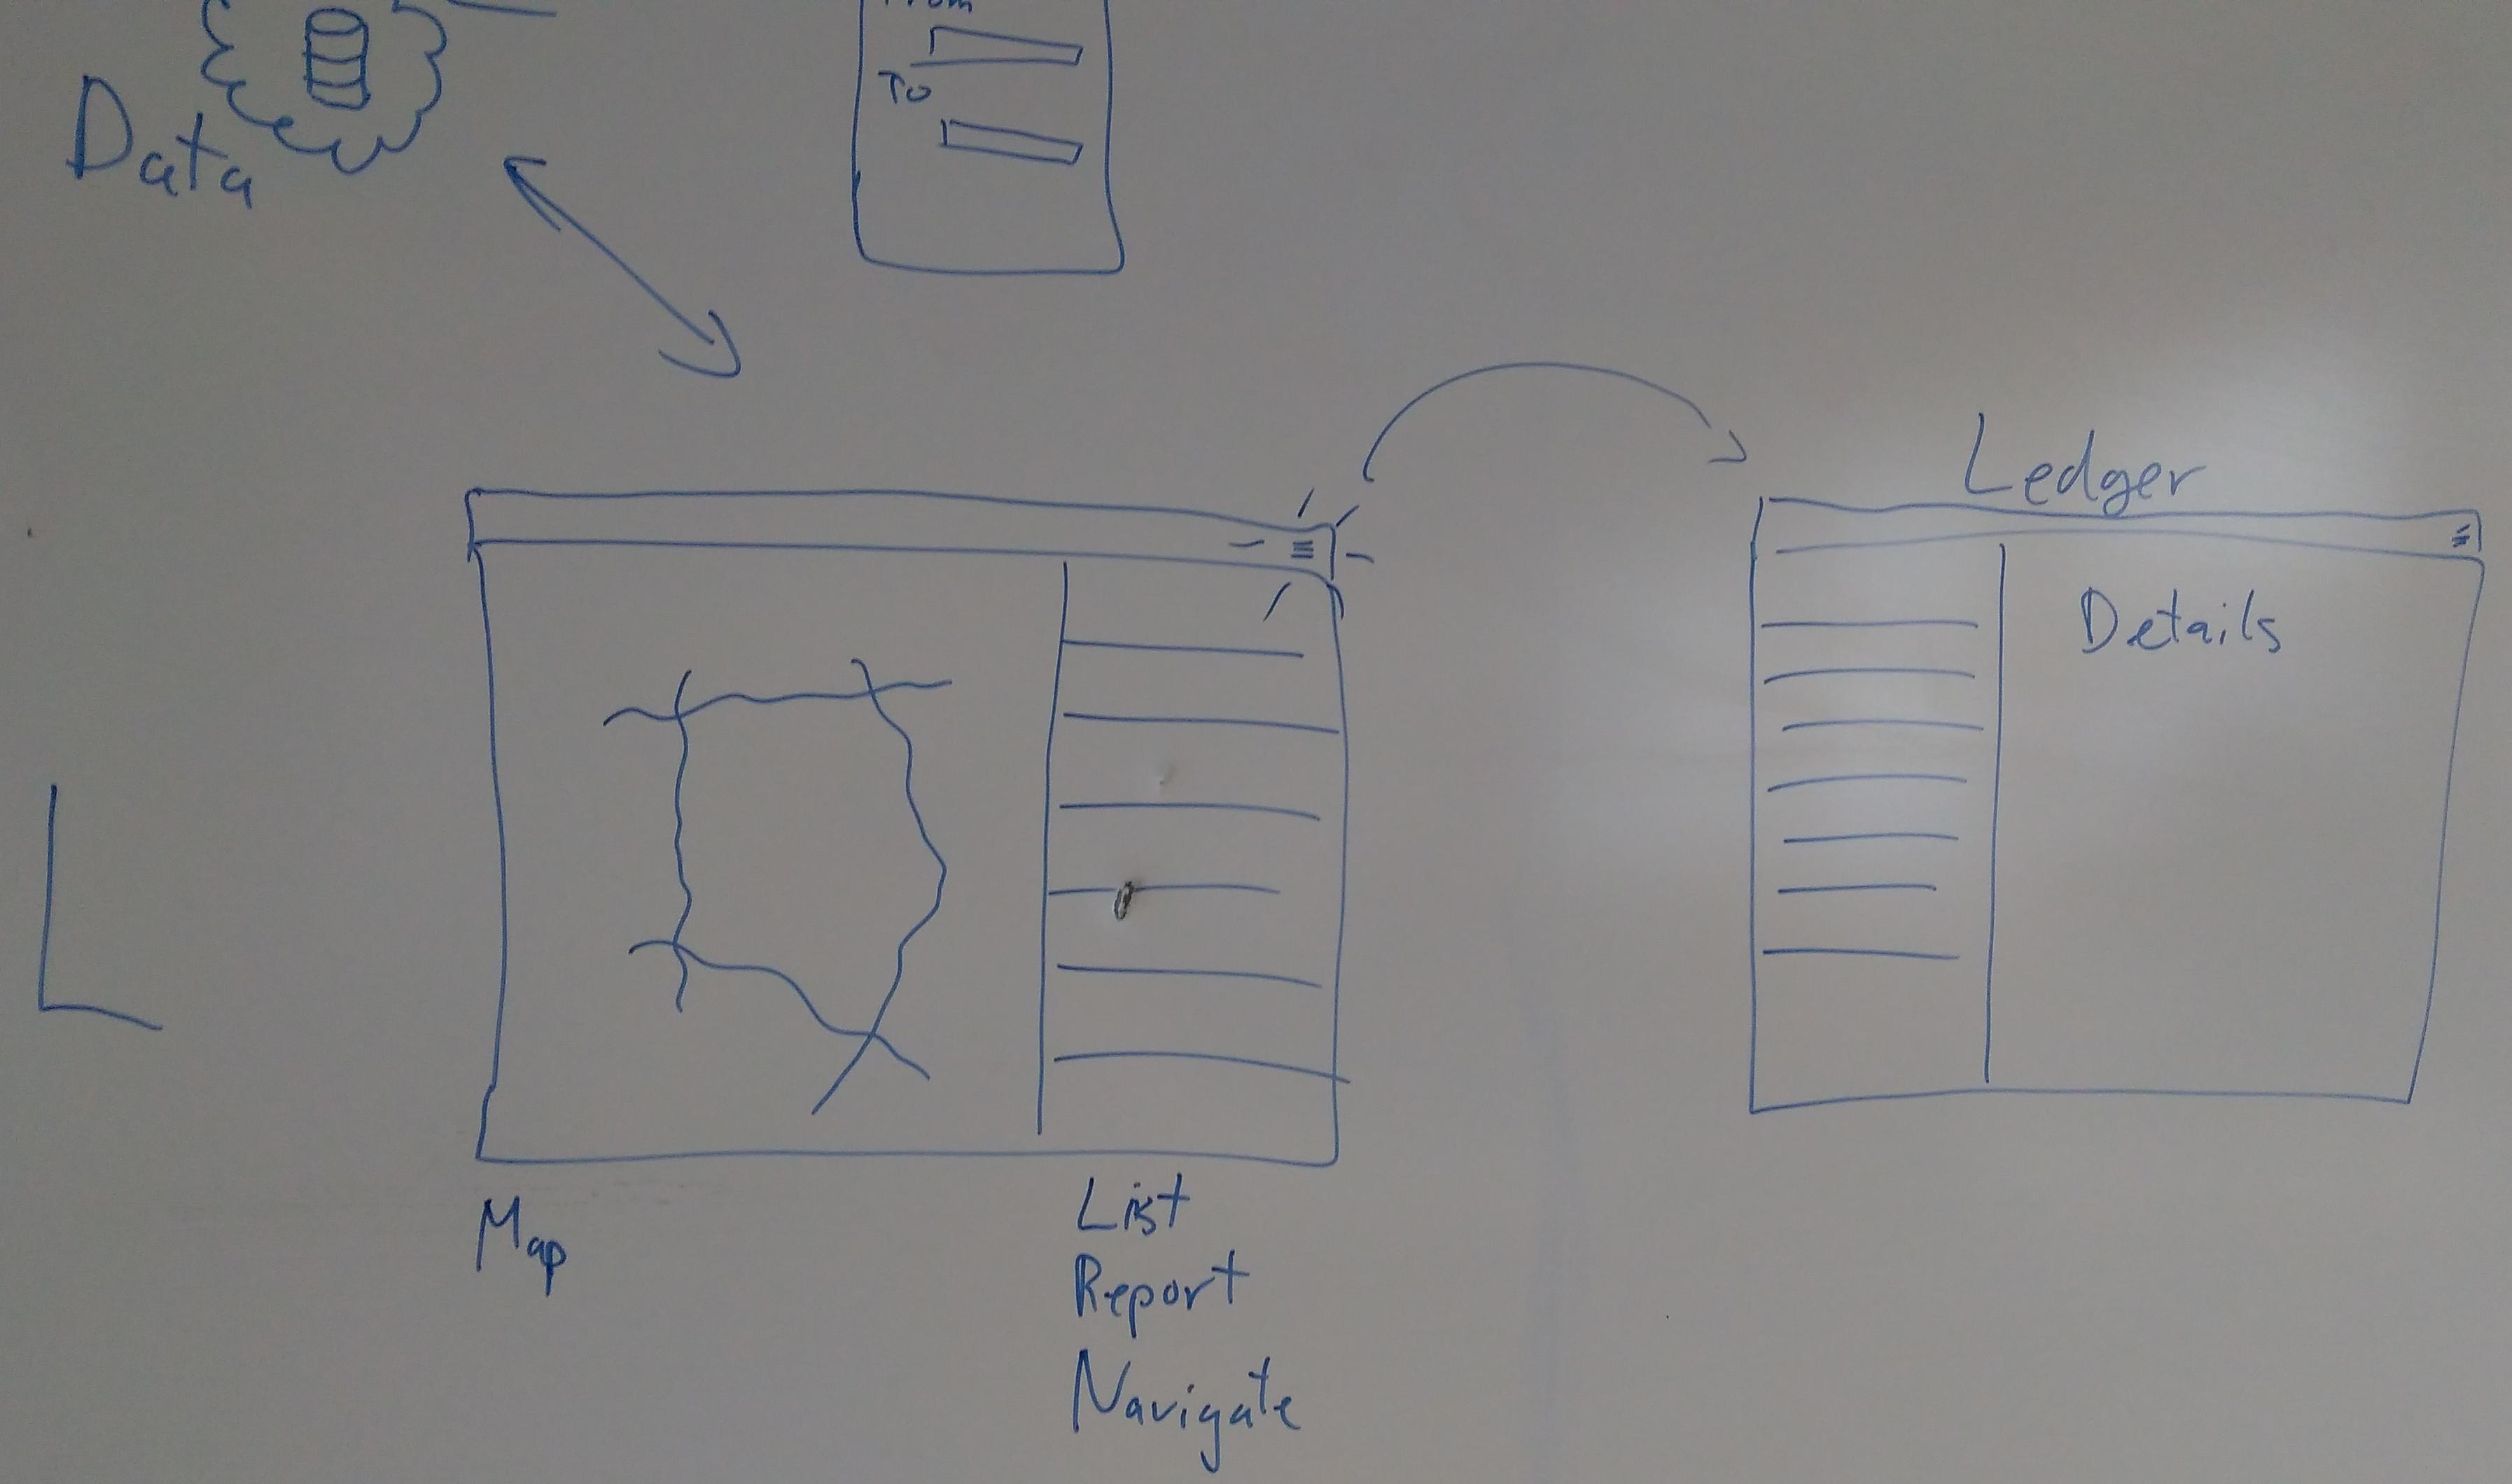 From
To
Data
Ledger
Details
Map
List
Report
Navigate